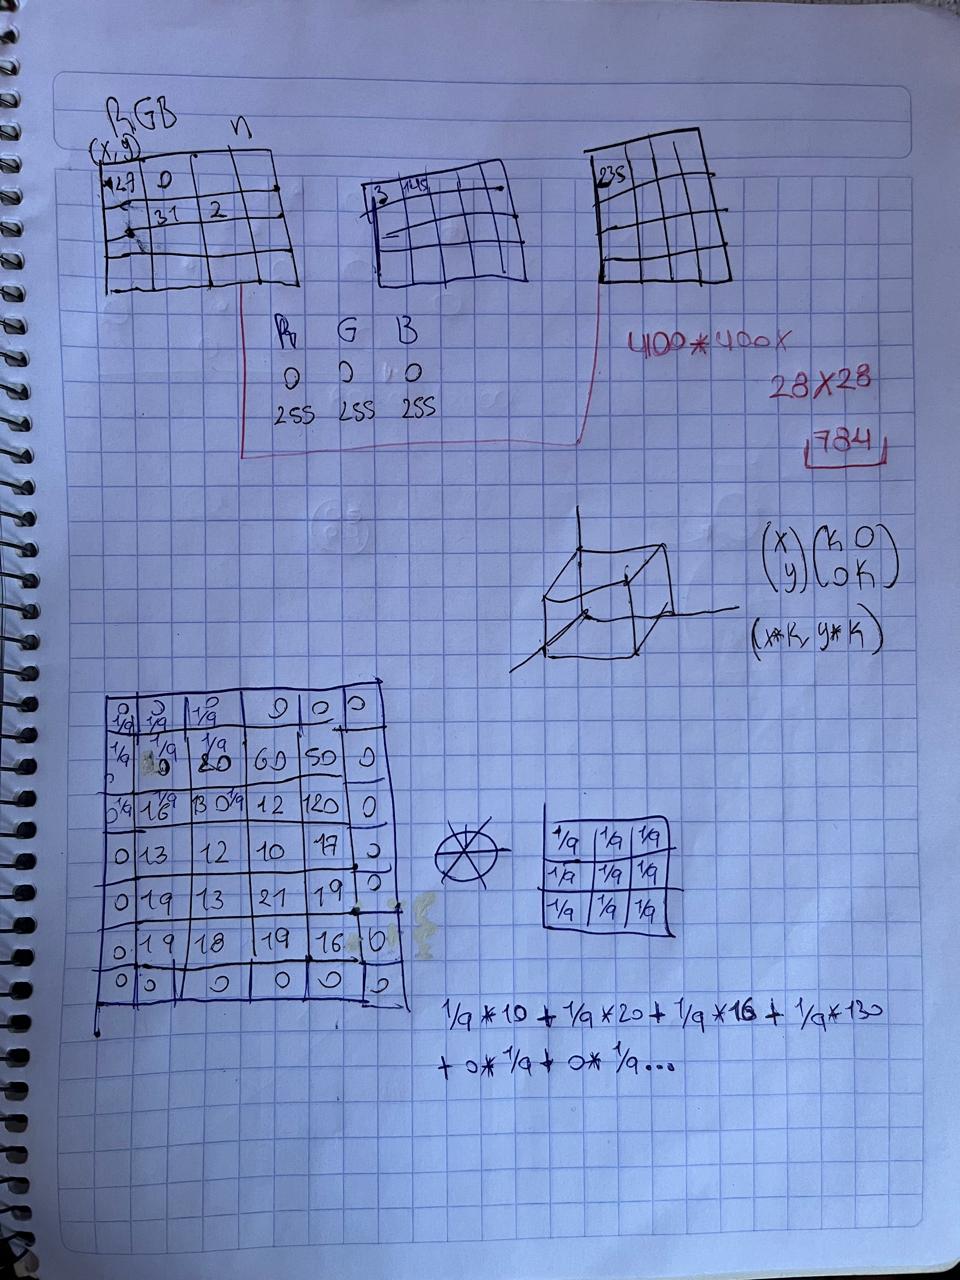 RGB
(x,y) n
127 0
31 2
3 145
235
R G B
0 0 0
255 255 255
400*400x
28x28
784
(x y)(k 0 0 k)
(x*k, y*k)
0 0 0 0 0 0
1/9 1/9 1/9
1/9 1/9 1/9
0 10 20 60 50 0
0 1/9 16 1/9 130 1/9 12 120 0
0 13 12 10 17 0
0 19 13 21 19 0
0 19 18 19 16 0
0 0 0 0 0 0
1/9 1/9 1/9
1/9 1/9 1/9
1/9 1/9 1/9
1/9*10 + 1/9*20 + 1/9*16 + 1/9*130
+ 0*1/9 + 0*1/9...